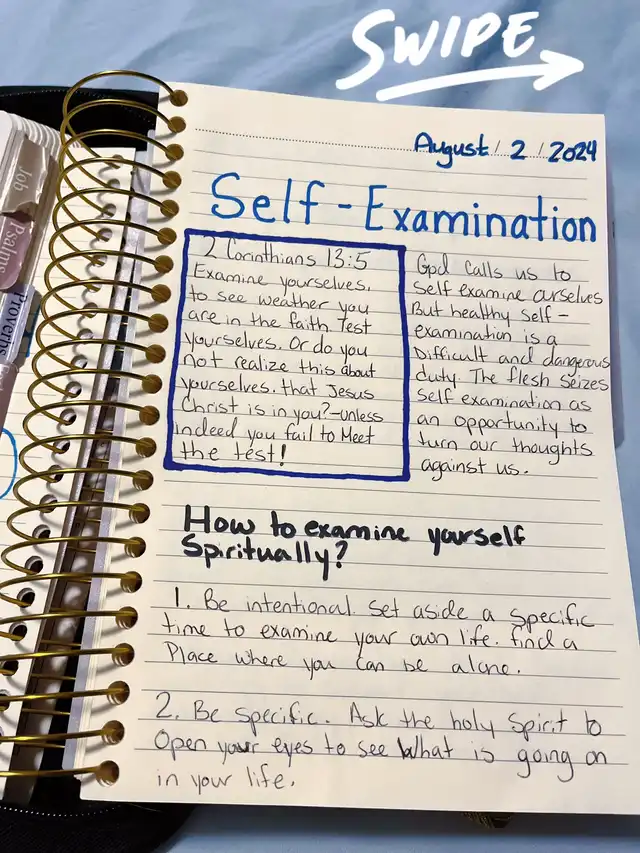 SWIPE
August / 2 / 2024
Self-Examination
2 Corinthians 13:5
Examine yourselves,
to see weather you
are in the faith Test
yourselves. Or do you
not realize this about
yourselves, that Jesus
Christ is in you?-unless
indeed you fail to Meet
the test!
God calls us to
self examine ourselves
But healthy self-
examination is a
Difficult and dangerous
duty. The flesh seizes
self examination as
an opportunity to
turn our thoughts
against us.
How to examine yourself
Spiritually?
1. Be intentional. set aside a specific
time to examine your own life. find a
Place where you can be alone.
2. Be specific. Ask the holy Spirit to
Open your eyes to see What is going on
in your life.
Job
Psalms
Proverbs